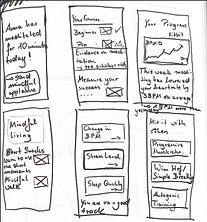 Anna has
meditated
for 10 minutes
today!
→ send
mindful
Your
Beginner
Pro
Evidence on medi-
tation
Measure your
success
Your Progress
Fitbit
BPM
This week medi-
ting has lowered
your heartrate by
3 BPM on average
Mindful
Living
Short Snacks
learn to use
the short
moments
Mindful
walk
Change in
BPM
Stress Level
Sleep Quality
You are on good
track
Mix it with others
Progressive
Wim Hof/
Simple Breath
Autogenic
Training